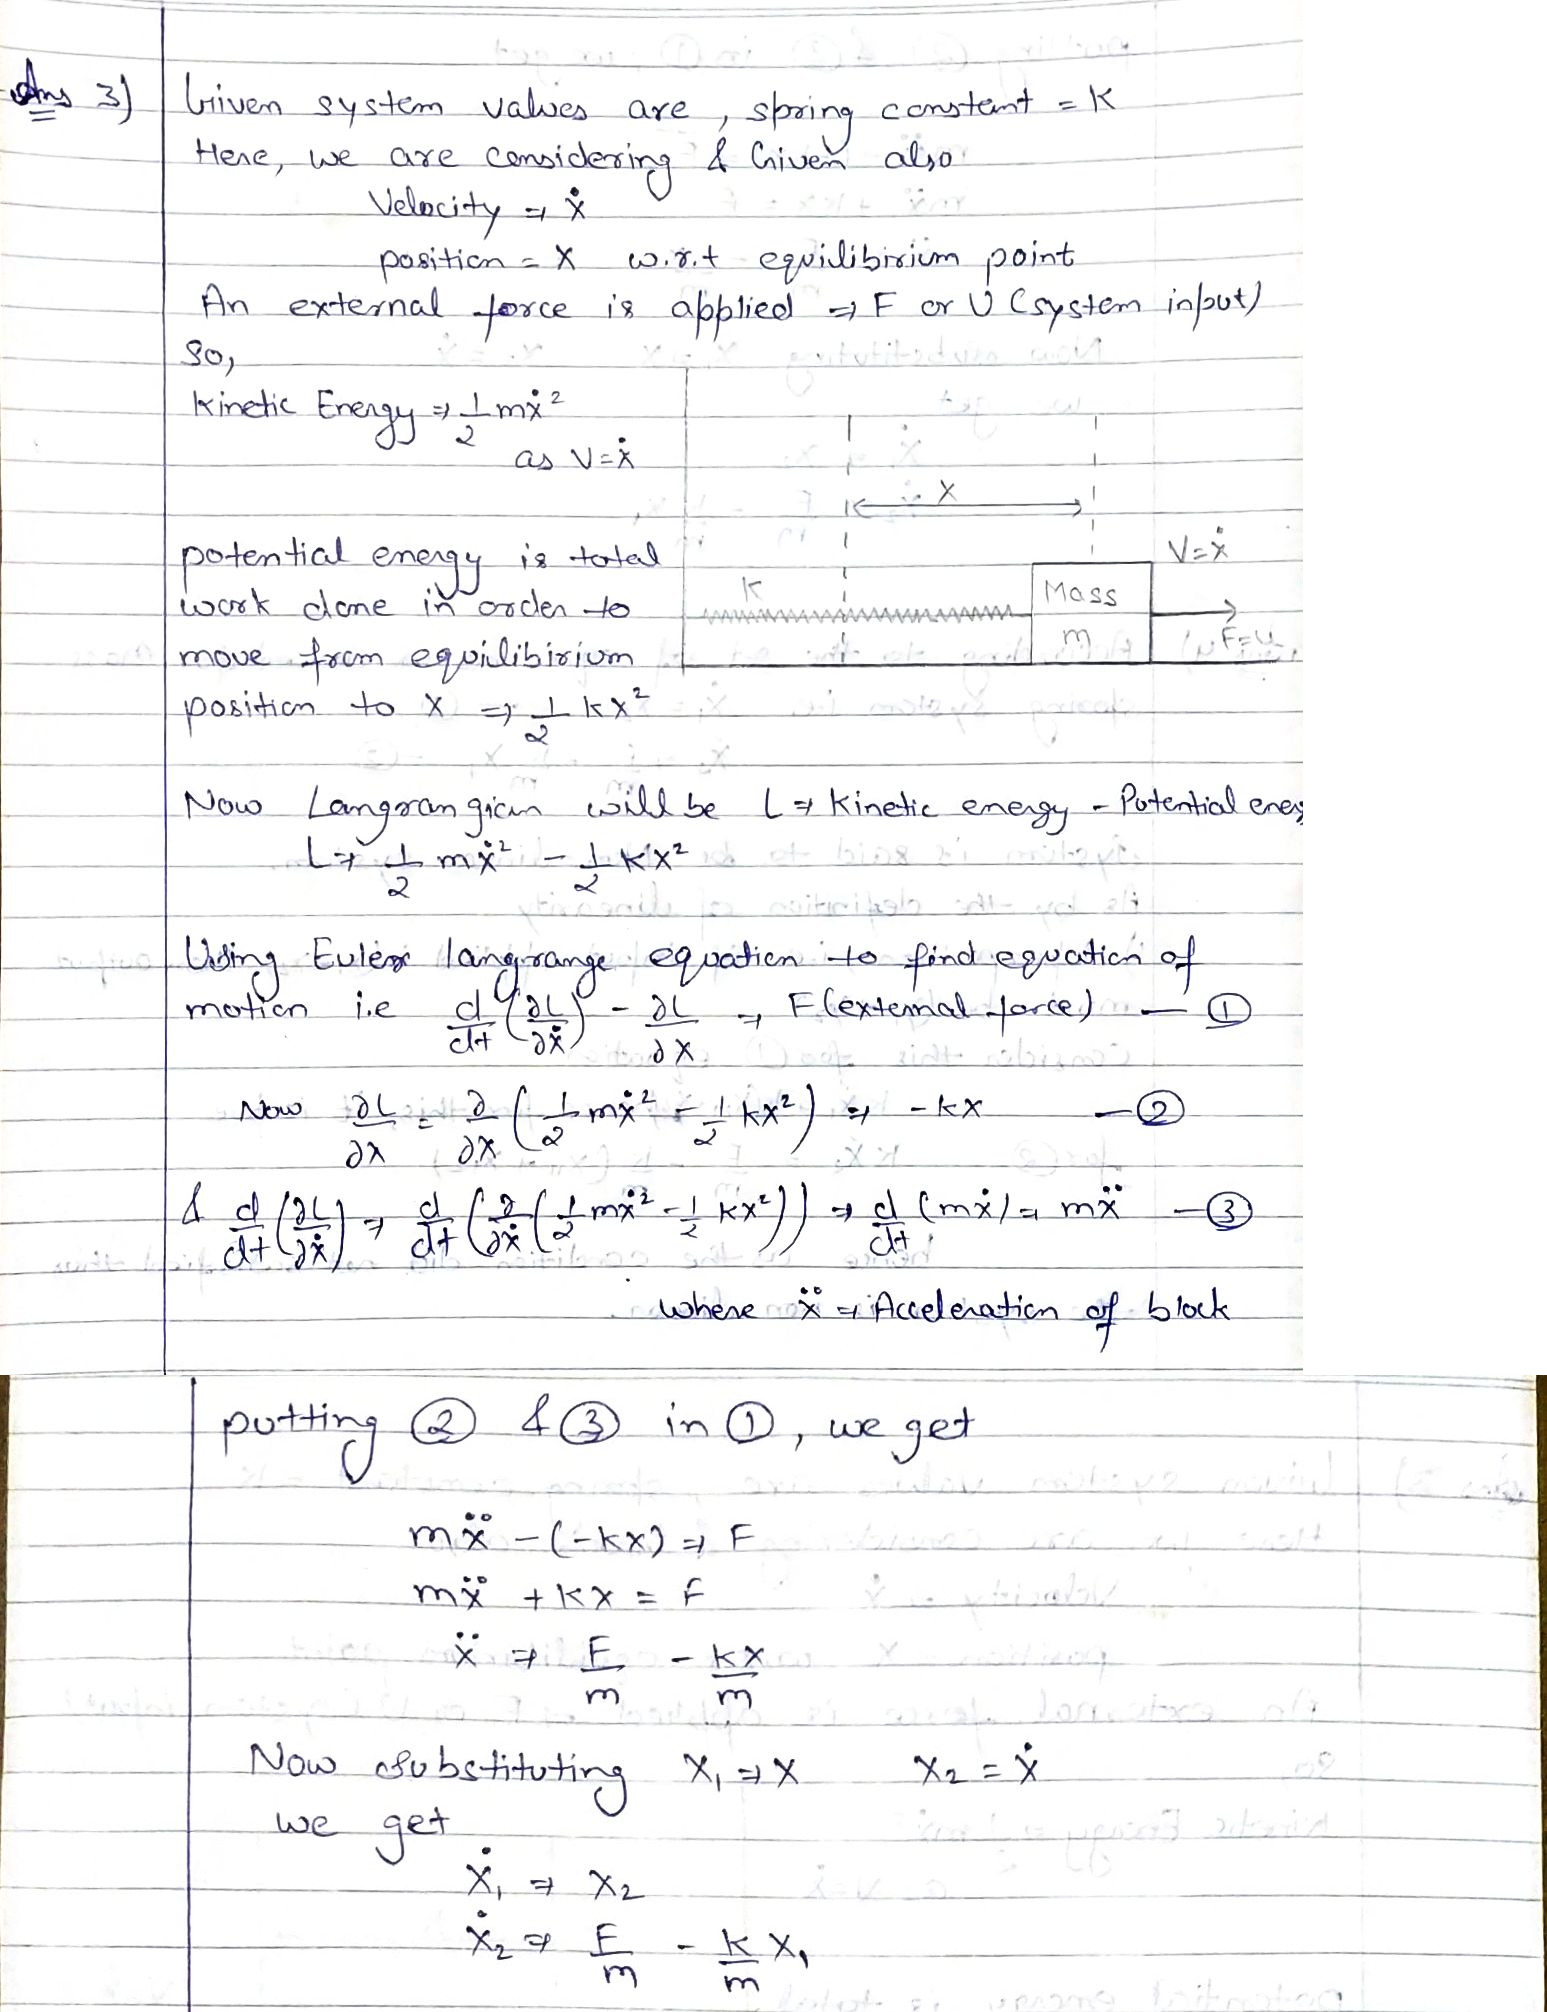 Ans 3) Given system values are, spring constant = K
Here, we are considering & Given also
Velocity ⇒ ẋ
position = x w.r.t equilibirium point
An external force is applied ⇒ F or U (system input)
So,
Kinetic Energy ⇒ 1/2 mẋ²
as V=ẋ
potential energy is total
work done in order to
move from equilibirium
position to x ⇒ 1/2 kx²
x
V=ẋ
K
Mass
m
F=U
Now Langrangian will be L ⇒ Kinetic energy - Potential energ
L ⇒ 1/2 mẋ² - 1/2 kx²
Using Euler langrange equation to find equation of
motion i.e d/dt (∂L/∂ẋ) - ∂L/∂x ⇒ F (external force) — ①
Now ∂L/∂x = ∂/∂x (1/2 mẋ² - 1/2 kx²) ⇒ -kx — ②
& d/dt (∂L/∂ẋ) ⇒ d/dt (∂/∂ẋ (1/2 mẋ² - 1/2 kx²)) ⇒ d/dt (mẋ) ⇒ mẍ — ③
where ẍ ⇒ Acceleration of block
putting ② & ③ in ①, we get
mẍ - (-kx) ⇒ F
mẍ + kx = F
ẍ ⇒ F/m - kx/m
Now substituting x₁ ⇒ x x₂ = ẋ
we get
ẋ₁ ⇒ x₂
ẋ₂ ⇒ F/m - k/m x₁